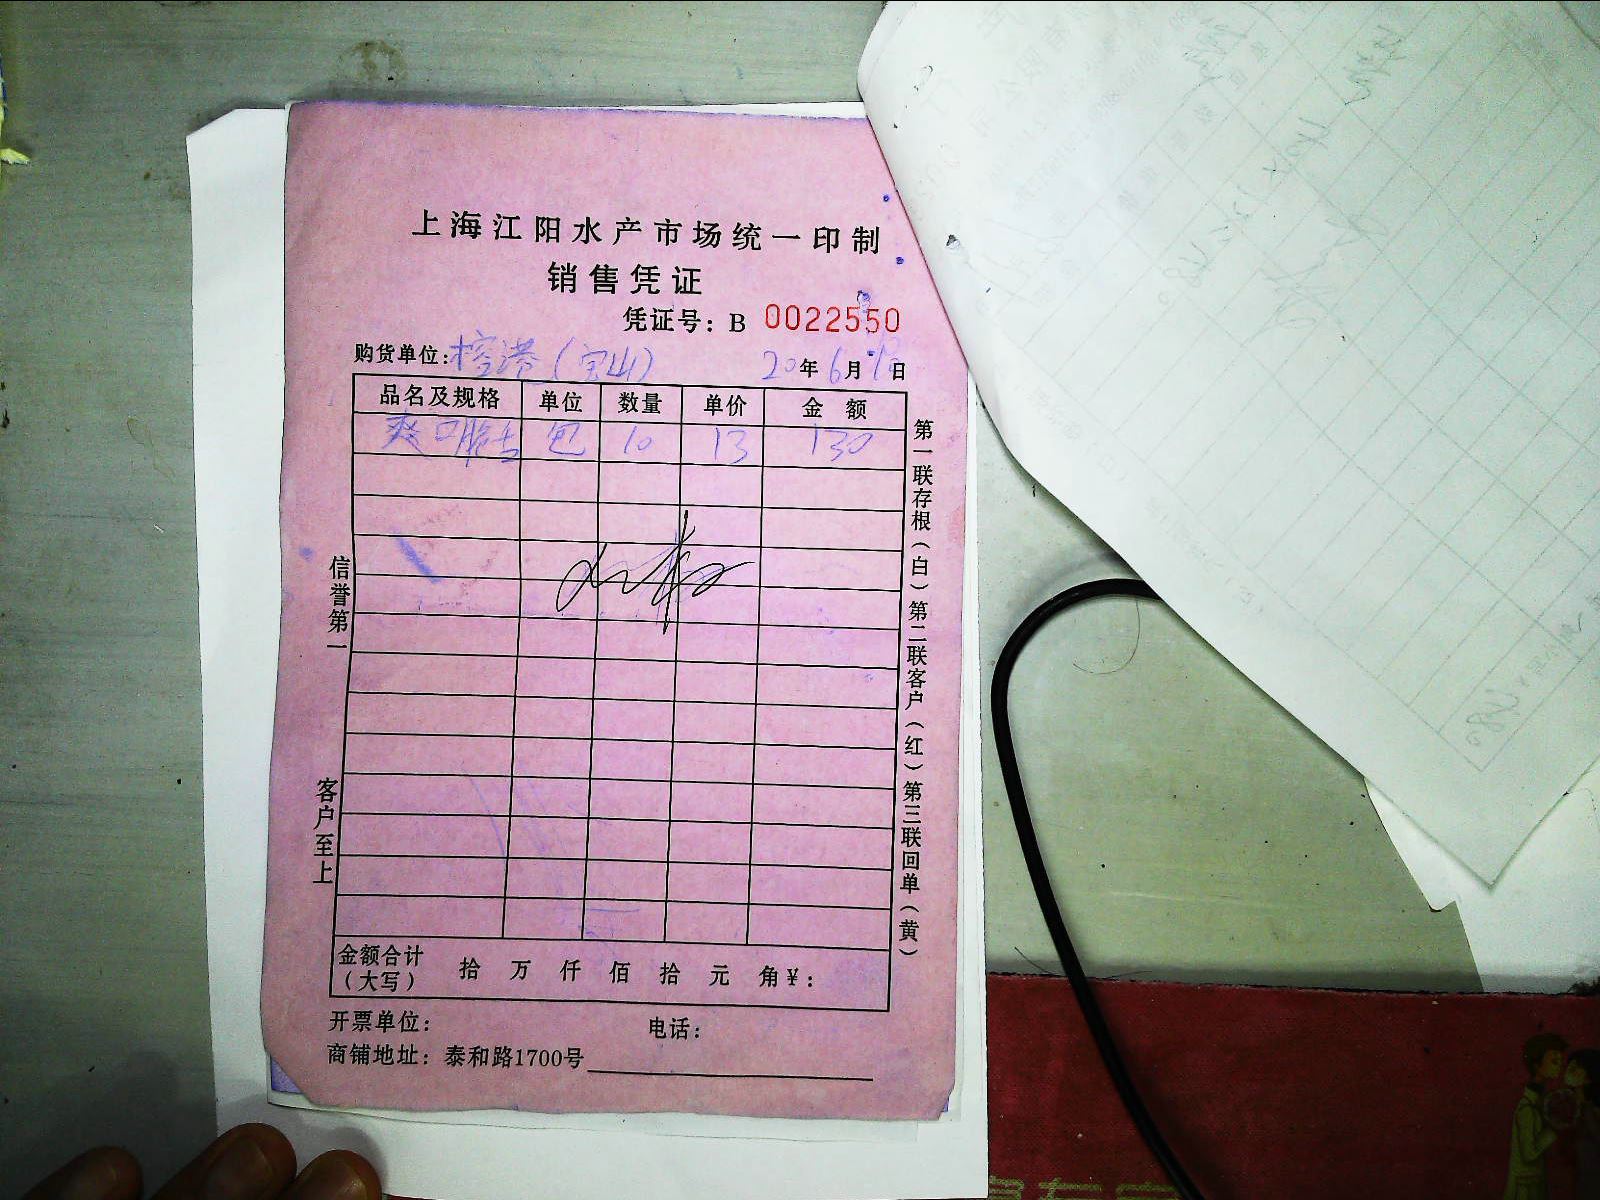 上海江阳水产市场统一印制
销售凭证
凭证号：B 0022550
购货单位： （宝山） 20年6月 日
品名及规格 单位 数量 单价 金 额
爽口脆 包 10 13 130
金额合计（大写） 拾 万 仟 佰 拾 元 角￥：
开票单位： 电话：
商铺地址：泰和路1700号
信誉第一
客户至上
第一联存根（白）第二联客户（红）第三联回单（黄）